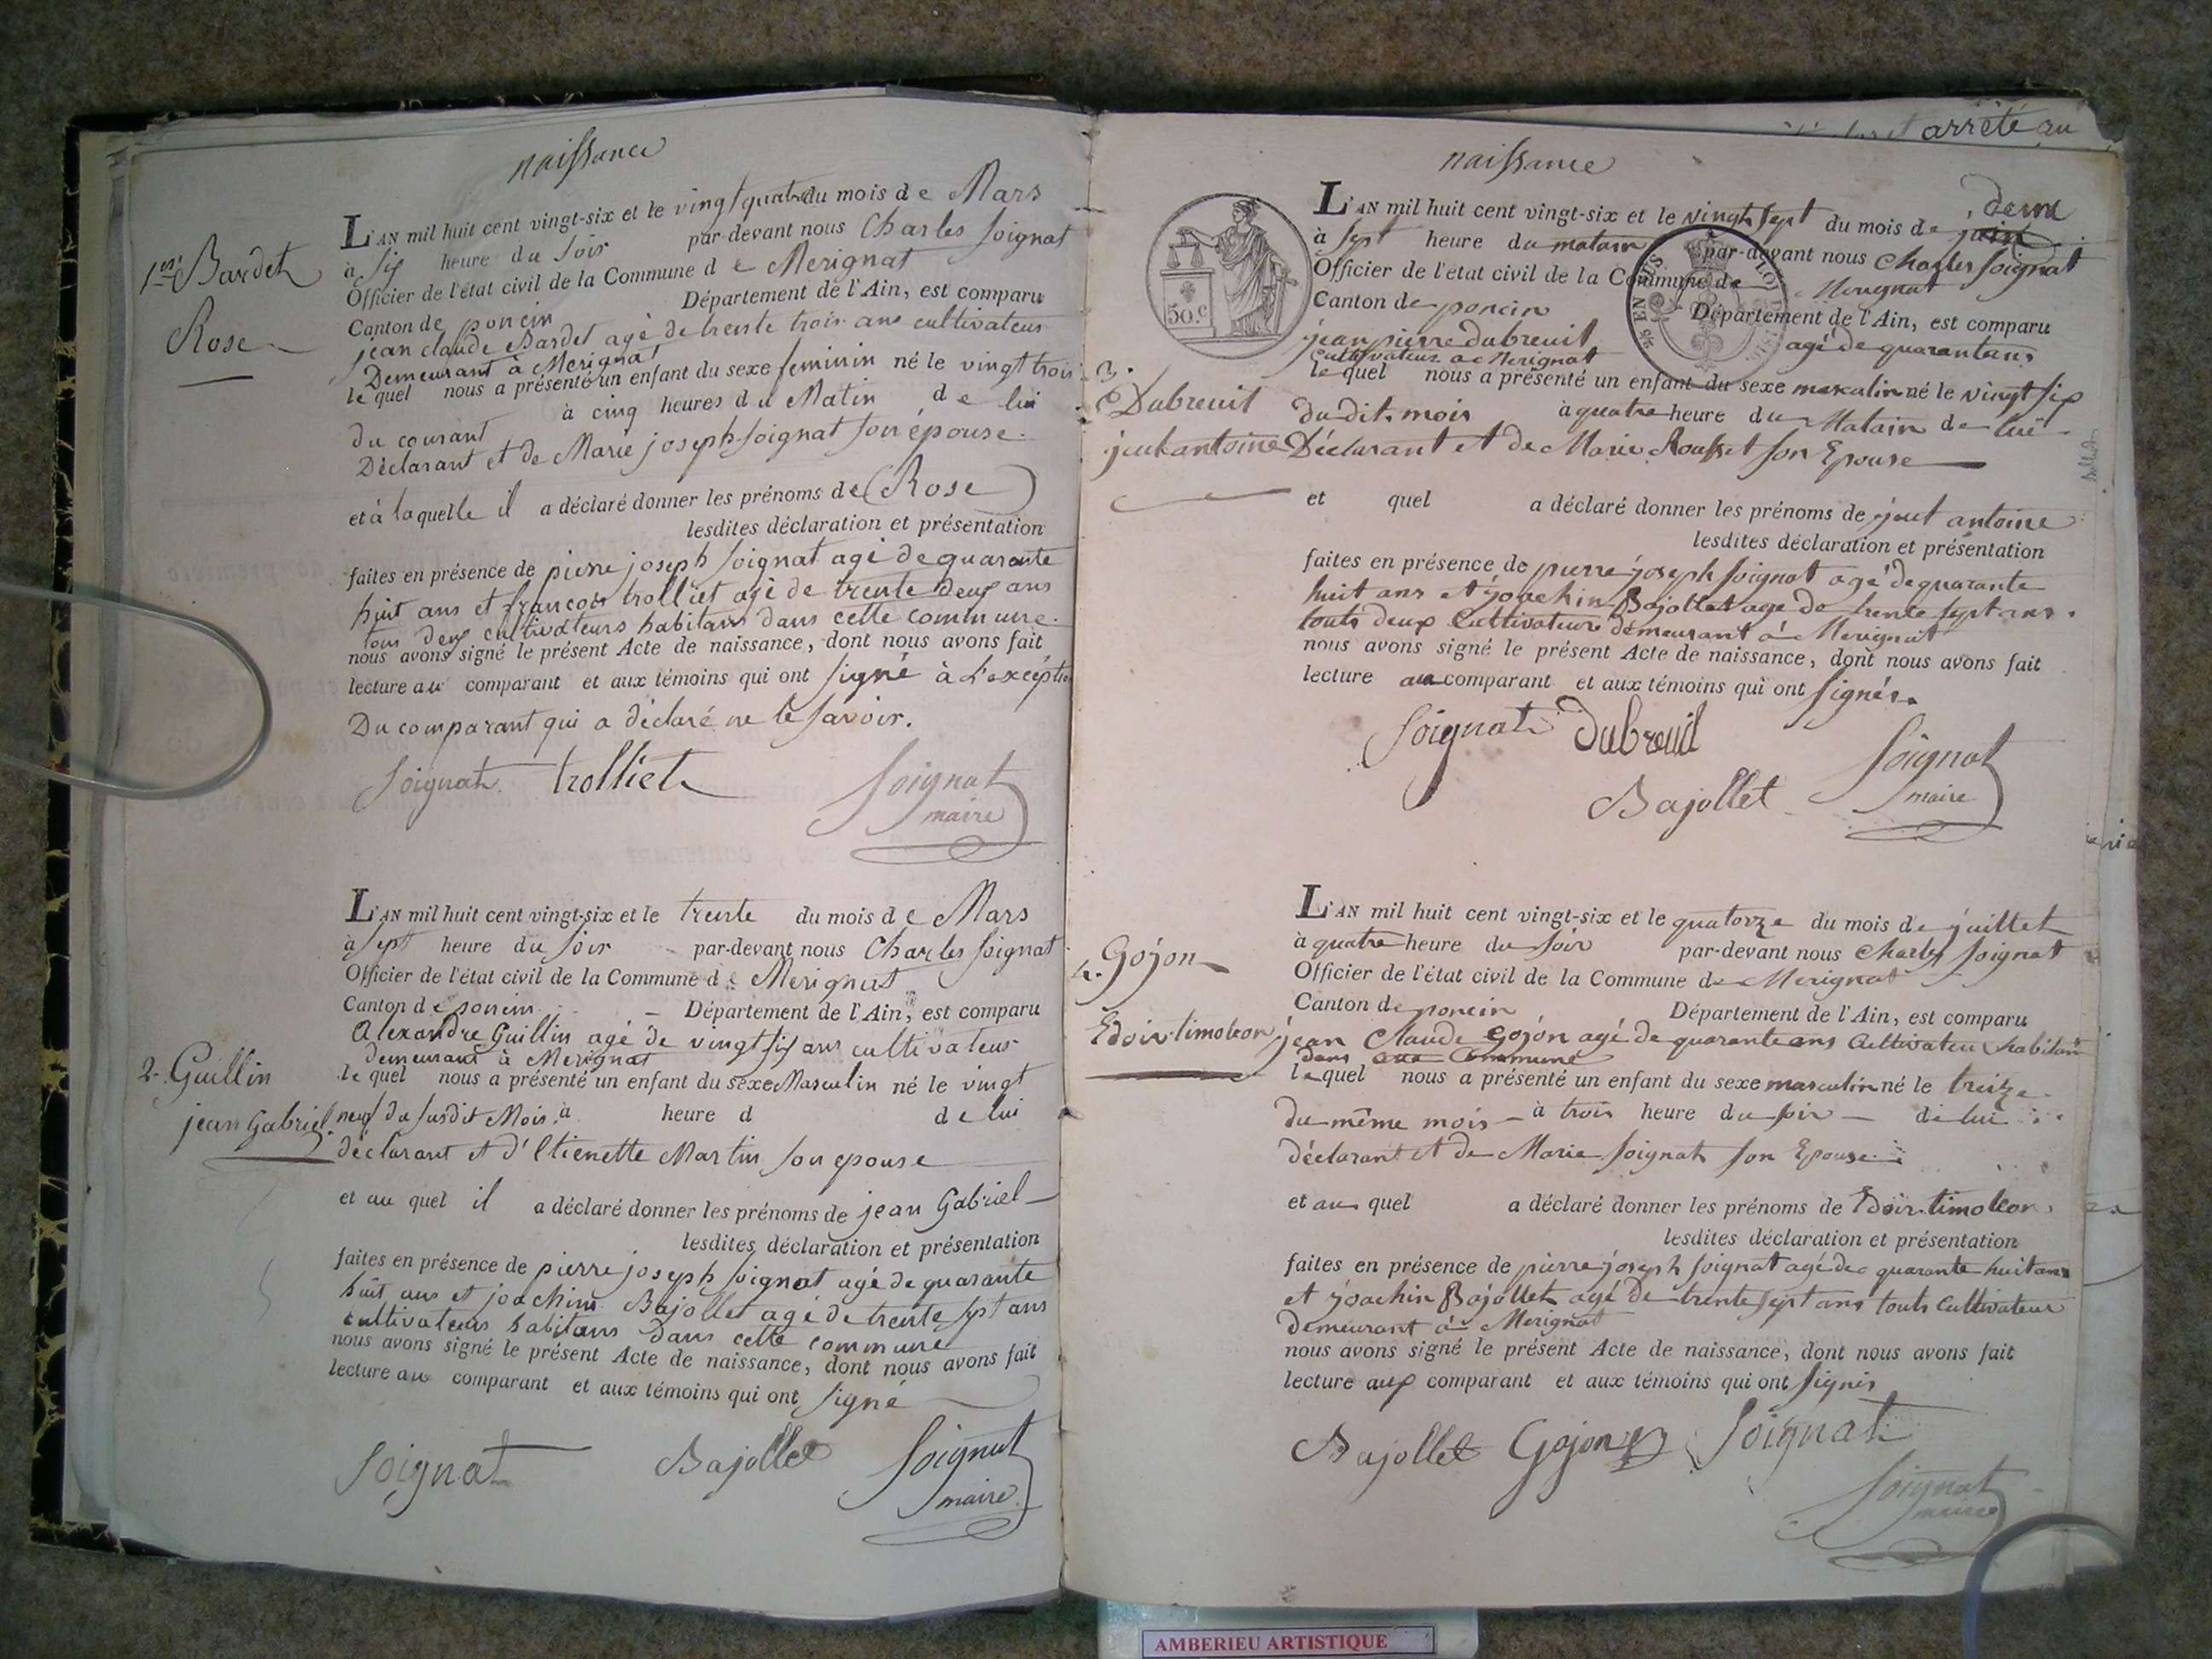 naissance
1re Bardet
Rose
L'AN mil huit cent vingt-six et le vingt quatre du mois de Mars
à six heure du soir par-devant nous Charles Soignat
Officier de l'état civil de la Commune de Merignat
Canton de poncin Département de l'Ain, est comparu
jean claude Bardet agé de trente trois ans cultivateur
Demeurant à Merignat
le quel nous a présenté un enfant du sexe feminin né le vingt trois
du courant à cinq heures du Matin de lui
Déclarant et de Marie joseph Soignat son épouse.
et à laquelle il a déclaré donner les prénoms de Rose
lesdites déclaration et présentation
faites en présence de pierre joseph Soignat agé de quarante
huit ans et françois trolliet agé de trente deux ans
tous deux cultivateurs habitans dans cette commune.
nous avons signé le présent Acte de naissance, dont nous avons fait
lecture au comparant et aux témoins qui ont signé à l'exception
Du comparant qui a déclaré ne le savoir.
Soignat trolliet Soignat
maire
2. Guillin
jean Gabriel
L'AN mil huit cent vingt-six et le trente du mois de Mars
à sept heure du soir par-devant nous Charles Soignat
Officier de l'état civil de la Commune de Merignat
Canton de poncin Département de l'Ain, est comparu
Alexandre Guillin agé de vingt six ans cultivateur
demeurant à Merignat
le quel nous a présenté un enfant du sexe Masculin né le vingt
neuf du susdit Mois à heure d de lui
déclarant et d'Etienette Martin son epouse
et au quel il a déclaré donner les prénoms de jean Gabriel
lesdites déclaration et présentation
faites en présence de pierre joseph Soignat agé de quarante
huit ans et joachim Bajollet agé de trente sept ans
cultivateurs habitans dans cette commune
nous avons signé le présent Acte de naissance, dont nous avons fait
lecture au comparant et aux témoins qui ont signé
Soignat Bajollet Soignat
maire
arrêté au
naissance
50.c
3.
Dubreuil
just antoine
L'AN mil huit cent vingt-six et le vingt sept du mois de juin
à sept heure du matain par-devant nous Charles Soignat
Officier de l'état civil de la Commune de Merignat
Canton de poncin Département de l'Ain, est comparu
jean pierre dubreuil agé de quarantans
cultivateur a Merignat
le quel nous a présenté un enfant du sexe mascalin né le vingt six
du dit mois à quatre heure du Matain de lui
Déclarant et de Marie Rousset son Epouse
et quel a déclaré donner les prénoms de just antoine
lesdites déclaration et présentation
faites en présence de pierre joseph Soignat agé de quarante
huit ans et joachin Bajollet agé de trente sept ans.
touts deux Cultivateur demeurant à Merignat
nous avons signé le présent Acte de naissance, dont nous avons fait
lecture au comparant et aux témoins qui ont signés.
Soignat Dubreuil Soignat
Bajollet maire
4. Gojon
Edoir timoleon
L'AN mil huit cent vingt-six et le quatorze du mois de juillet
à quatre heure du soir par-devant nous Charles Soignat
Officier de l'état civil de la Commune de Merignat
Canton de poncin Département de l'Ain, est comparu
jean Claude Gojon agé de quarante ans Cultivateu habitant
dans Commune
lequel nous a présenté un enfant du sexe masculin né le treize
du même mois à trois heure du soir de lui
déclarant et de Marie Soignat son Epouse
et au quel a déclaré donner les prénoms de Edoir timoleon
lesdites déclaration et présentation
faites en présence de pierre joseph Soignat agé de quarante huit ans
et joachin Bajollet agé de trente sept ans touts Cultivateur
demeurant à Merignat
nous avons signé le présent Acte de naissance, dont nous avons fait
lecture aux comparant et aux témoins qui ont signés
Bajollet Gojon Soignat
Soignat
maire
AMBERIEU ARTISTIQUE